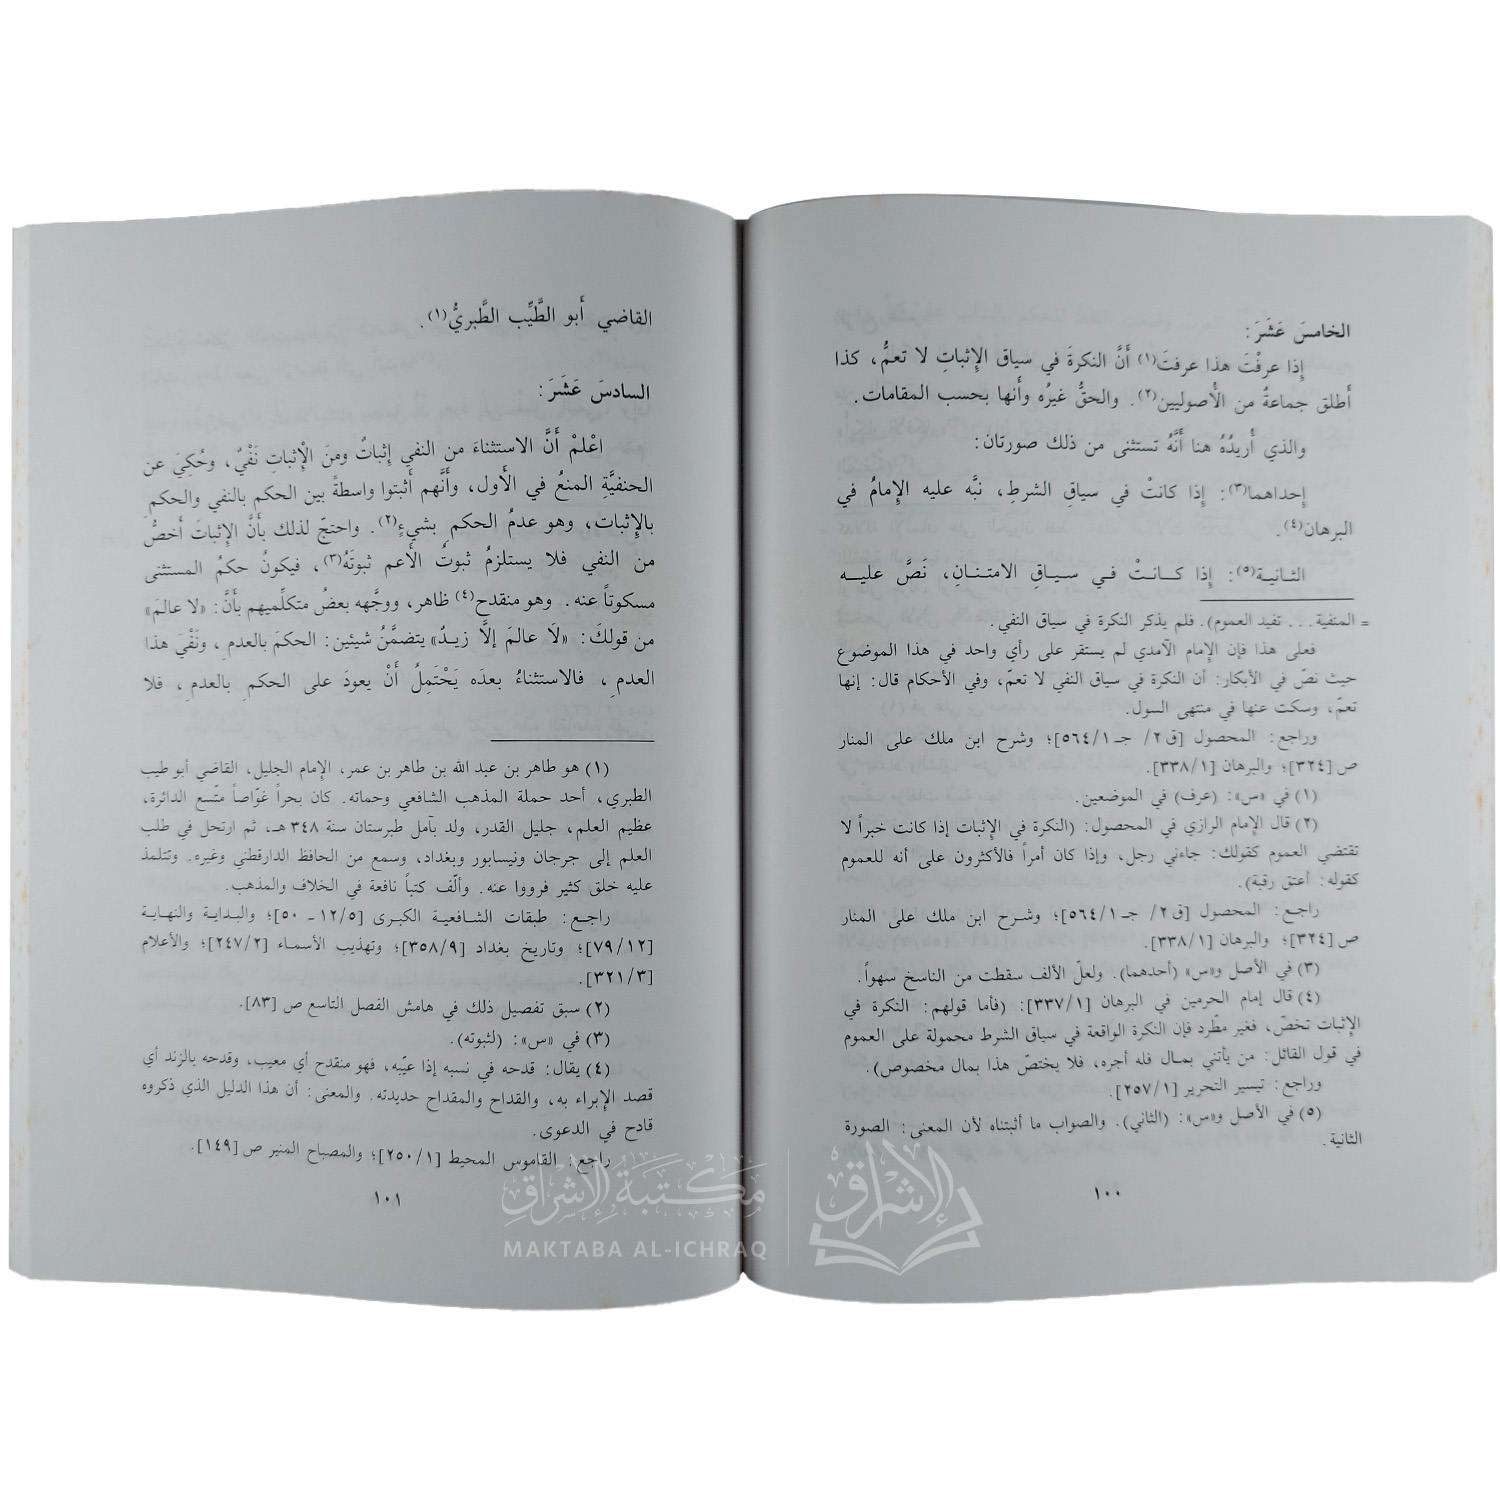 الخامسَ عَشَرَ:
إِذا عرفْتَ هذا عرفتَ(١) أَنَّ النكرةَ في سياق الإِثباتِ لا تعمُّ، كذا
أطلق جماعةٌ من الأُصوليين(٢). والحقُّ غيرُه وأَنها بحسب المقامات.
والذي أُريدُهُ هنا أَنَّهُ تستثنى من ذلك صورتان:
إِحداهما(٣): إِذا كانتْ في سياقِ الشرطِ، نبَّه عليه الإِمامُ في
البرهان(٤).
الثانية(٥): إِذا كانتْ في سياقِ الامتنانِ، نَصَّ عليه
= المنفية... تفيد العموم). فلم يذكر النكرة في سياق النفي.
فعلى هذا فإن الإمام الآمدي لم يستقر على رأي واحد في هذا الموضوع
حيث نصّ في الأبكار: أن النكرة في سياق النفي لا تعمّ، وفي الأحكام قال: إنها
تعمّ، وسكت عنها في منتهى السول.
وراجع: المحصول [ق٢/ جـ٥٦٤/١]؛ وشرح ابن ملك على المنار
ص [٣٢٤]؛ والبرهان [٣٣٨/١].
(١) في «س»: (عرف) في الموضعين.
(٢) قال الإمام الرازي في المحصول: (النكرة في الإثبات إذا كانت خبراً لا
تقتضي العموم كقولك: جاءني رجل، وإذا كان أمراً فالأكثرون على أنه للعموم
كقوله: أعتق رقبة).
راجع: المحصول [ق٢/ جـ٥٦٤/١]؛ وشرح ابن ملك على المنار
ص [٣٢٤]؛ والبرهان [٣٣٨/١].
(٣) في الأصل و«س» (أحدهما). ولعلّ الألف سقطت من الناسخ سهواً.
(٤) قال إمام الحرمين في البرهان [٣٣٧/١]: (فأما قولهم: النكرة في
الإثبات تخصّ، فغير مطّرد فإن النكرة الواقعة في سياق الشرط محمولة على العموم
في قول القائل: من يأتني بمال فله أجره، فلا يختصّ هذا بمال مخصوص).
وراجع: تيسير التحرير [٢٥٧/١].
(٥) في الأصل و«س»: (الثاني). والصواب ما أثبتناه لأن المعنى: الصورة
الثانية.
١٠٠
القاضي أَبو الطَّيِّب الطَّبريُّ(١).
السادسَ عَشَرَ:
اعْلمْ أَنَّ الاستثناءَ من النفي إِثباتٌ ومنَ الإِثباتِ نَفْيٌ، وحُكِيَ عن
الحنفيَّةِ المنعُ في الأَول، وأَنَّهم أَثبتوا واسطةً بين الحكم بالنفي والحكمِ
بالإِثبات، وهو عدمُ الحكمِ بشيءٍ(٢). واحتجّ لذلك بأَنَّ الإِثباتَ أَخصُّ
من النفي فلا يستلزمُ ثبوتُ الأَعم ثبوتَهُ(٣)، فيكونُ حكمُ المستثنى
مسكوتاً عنه. وهو منقدح(٤) ظاهر، ووجَّهه بعضُ متكلِّميهم بأَنَّ: «لا عالمَ»
من قولكَ: «لَا عالمَ إِلَّا زيدٌ» يتضمَّنُ شيئين: الحكمَ بالعدمِ، ونَفْيَ هذا
العدمِ، فالاستثناءُ بعدَه يَحْتَمِلُ أَنْ يعودَ على الحكمِ بالعدمِ، فلا
(١) هو طاهر بن عبد الله بن طاهر بن عمر، الإمام الجليل، القاضي أبو طيب
الطبري، أحد حملة المذهب الشافعي وحماته. كان بحراً غوّاصاً متّسع الدائرة،
عظيم العلم، جليل القدر، ولد بآمل طبرستان سنة ٣٤٨ هـ، ثم ارتحل في طلب
العلم إلى جرجان ونيسابور وبغداد، وسمع من الحافظ الدارقطني وغيره. وتتلمذ
عليه خلق كثير فرووا عنه. وألّف كتباً نافعة في الخلاف والمذهب.
راجع: طبقات الشافعية الكبرى [١٢/٥ - ٥٠]؛ والبداية والنهاية
[٧٩/١٢]؛ وتاريخ بغداد [٣٥٨/٩]؛ وتهذيب الأسماء [٢٤٧/٢]؛ والأعلام
[٣٢١/٣].
(٢) سبق تفصيل ذلك في هامش الفصل التاسع ص [٨٣].
(٣) في «س»: (لثبوته).
(٤) يقال: قدحه في نسبه إذا عيّبه، فهو منقدح أي معيب، وقدحه بالزند أي
قصد الإبراء به، والقداح والمقداح حديدته. والمعنى: أن هذا الدليل الذي ذكروه
قادح في الدعوى.
راجع: القاموس المحيط [٢٥٠/١]؛ والمصباح المنير ص [١٤٩].
١٠١
مكتبة الإشراق
الإشراق
MAKTABA AL-ICHRAQ